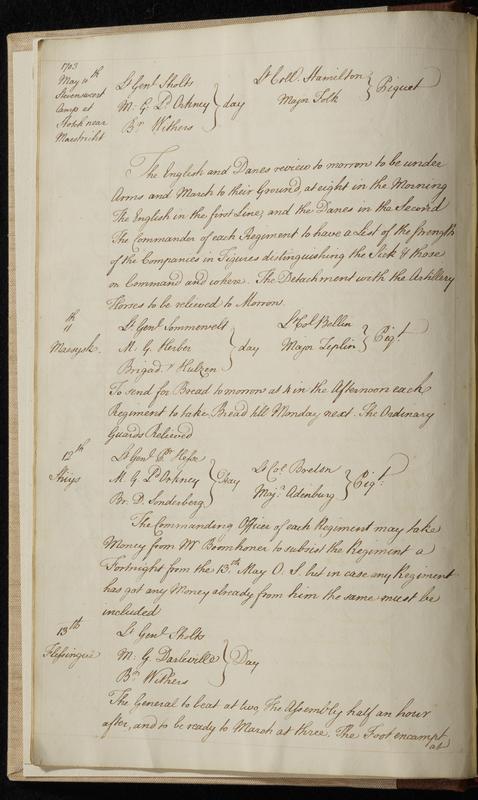 1703
May 10th Lt Genl Sholts Lt Coll. Hamilton
Stevenswert M: G. Ld Orkney day Piquet
Camp at Major Tolk
Stokk near Br Withers
Maestricht
The English and Danes review to morrow to be under
Arms and March to their Ground, at eight in the Morning
The English in the first Line, and the Danes in the Second
The Commander of each Regiment to have a List of the strength
of the Companies in Figures distinguishing the Sick & those
on Command and where. The Detachment with the Artillery
Horses to be relieved to Morrow.
th
11 Lt Genl Sommervelt Lt Col Bellin
Maesyck. M. G. Herber day Major Zeplin Piqt
Brigadr Hulzen
To send for Bread to morrow at 4 in the Afternoon each
Regiment to take Bread till Monday next. The Ordenary
Guards Relieved
12th Lt Genl Pr Hesse Lt Col Breden
M. G. Ld Orkney Day Piqt
Br. D. Sonderberg Majr Adenburg
The Commanding Officer of each Regiment may take
Money from Mr to subsist the Regiment a
Fortnight from the 13th May O. S. but in case any Regiment
has got any Money already from him the same must be
included
13th Lt Genl Sholts
M: G. Darleville Day
Br Withers
The General to beat at two, The Assembly half an hour
after, and to be ready to March at three. The Foot encampt
at